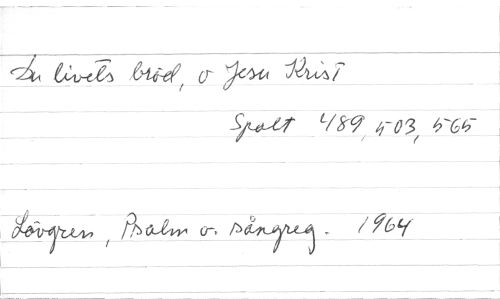 Du livets bröd, o Jesu Krist
Spalt 489, 503, 565
Lövgren, Psalm o. sångreg. 1964